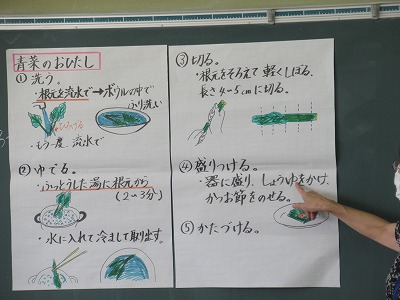 青菜のおひたし
①洗う。
・根元を流水で→ボウルの中で
ふり洗い
・もう一度 流水で
②ゆでる。
・ふっとうした湯に根元から
(2〜3分)
・水に入れて冷まして取り出す。
③切る。
・根元をそろえて軽くしぼる、
長さ4〜5cmに切る。
④盛りつける。
・器に盛り、しょうゆをかけ、
かつお節をのせる。
⑤かたづける。